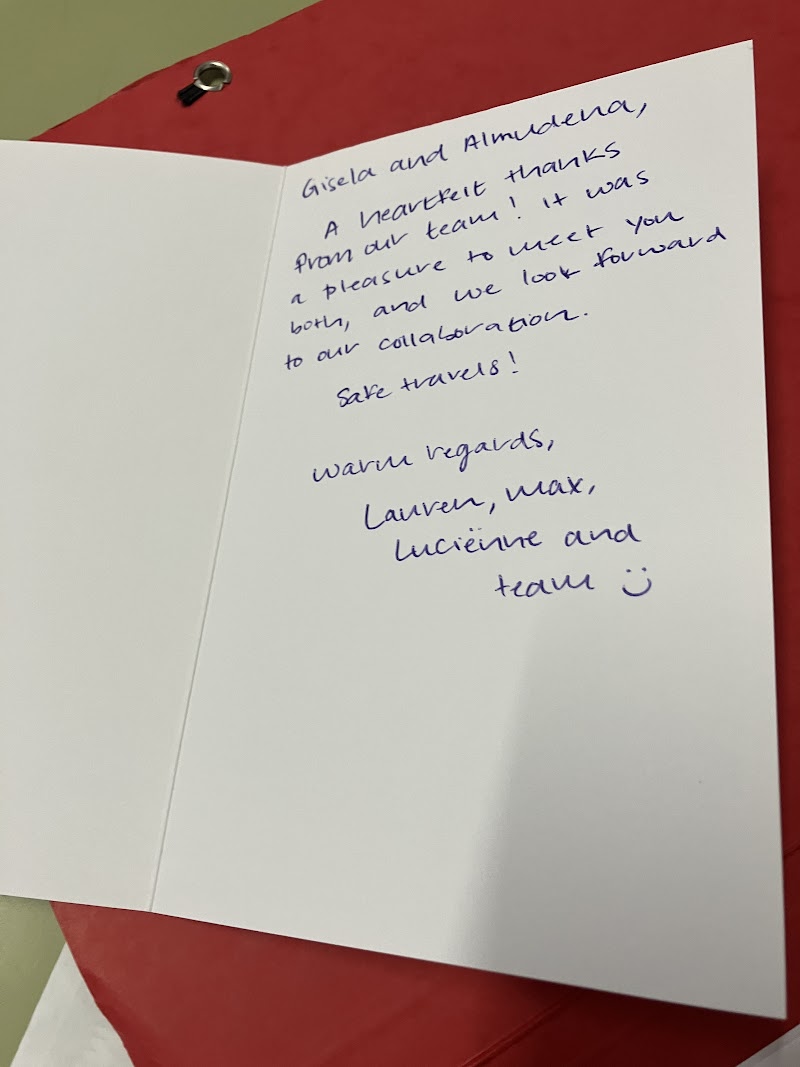 Gisela and Almudena,
A heartfelt thanks
from our team! it was
a pleasure to meet you
both, and we look forward
to our collaboration.
Safe travels!
warm regards,
Lauren, max,
Luciënne and
team :)